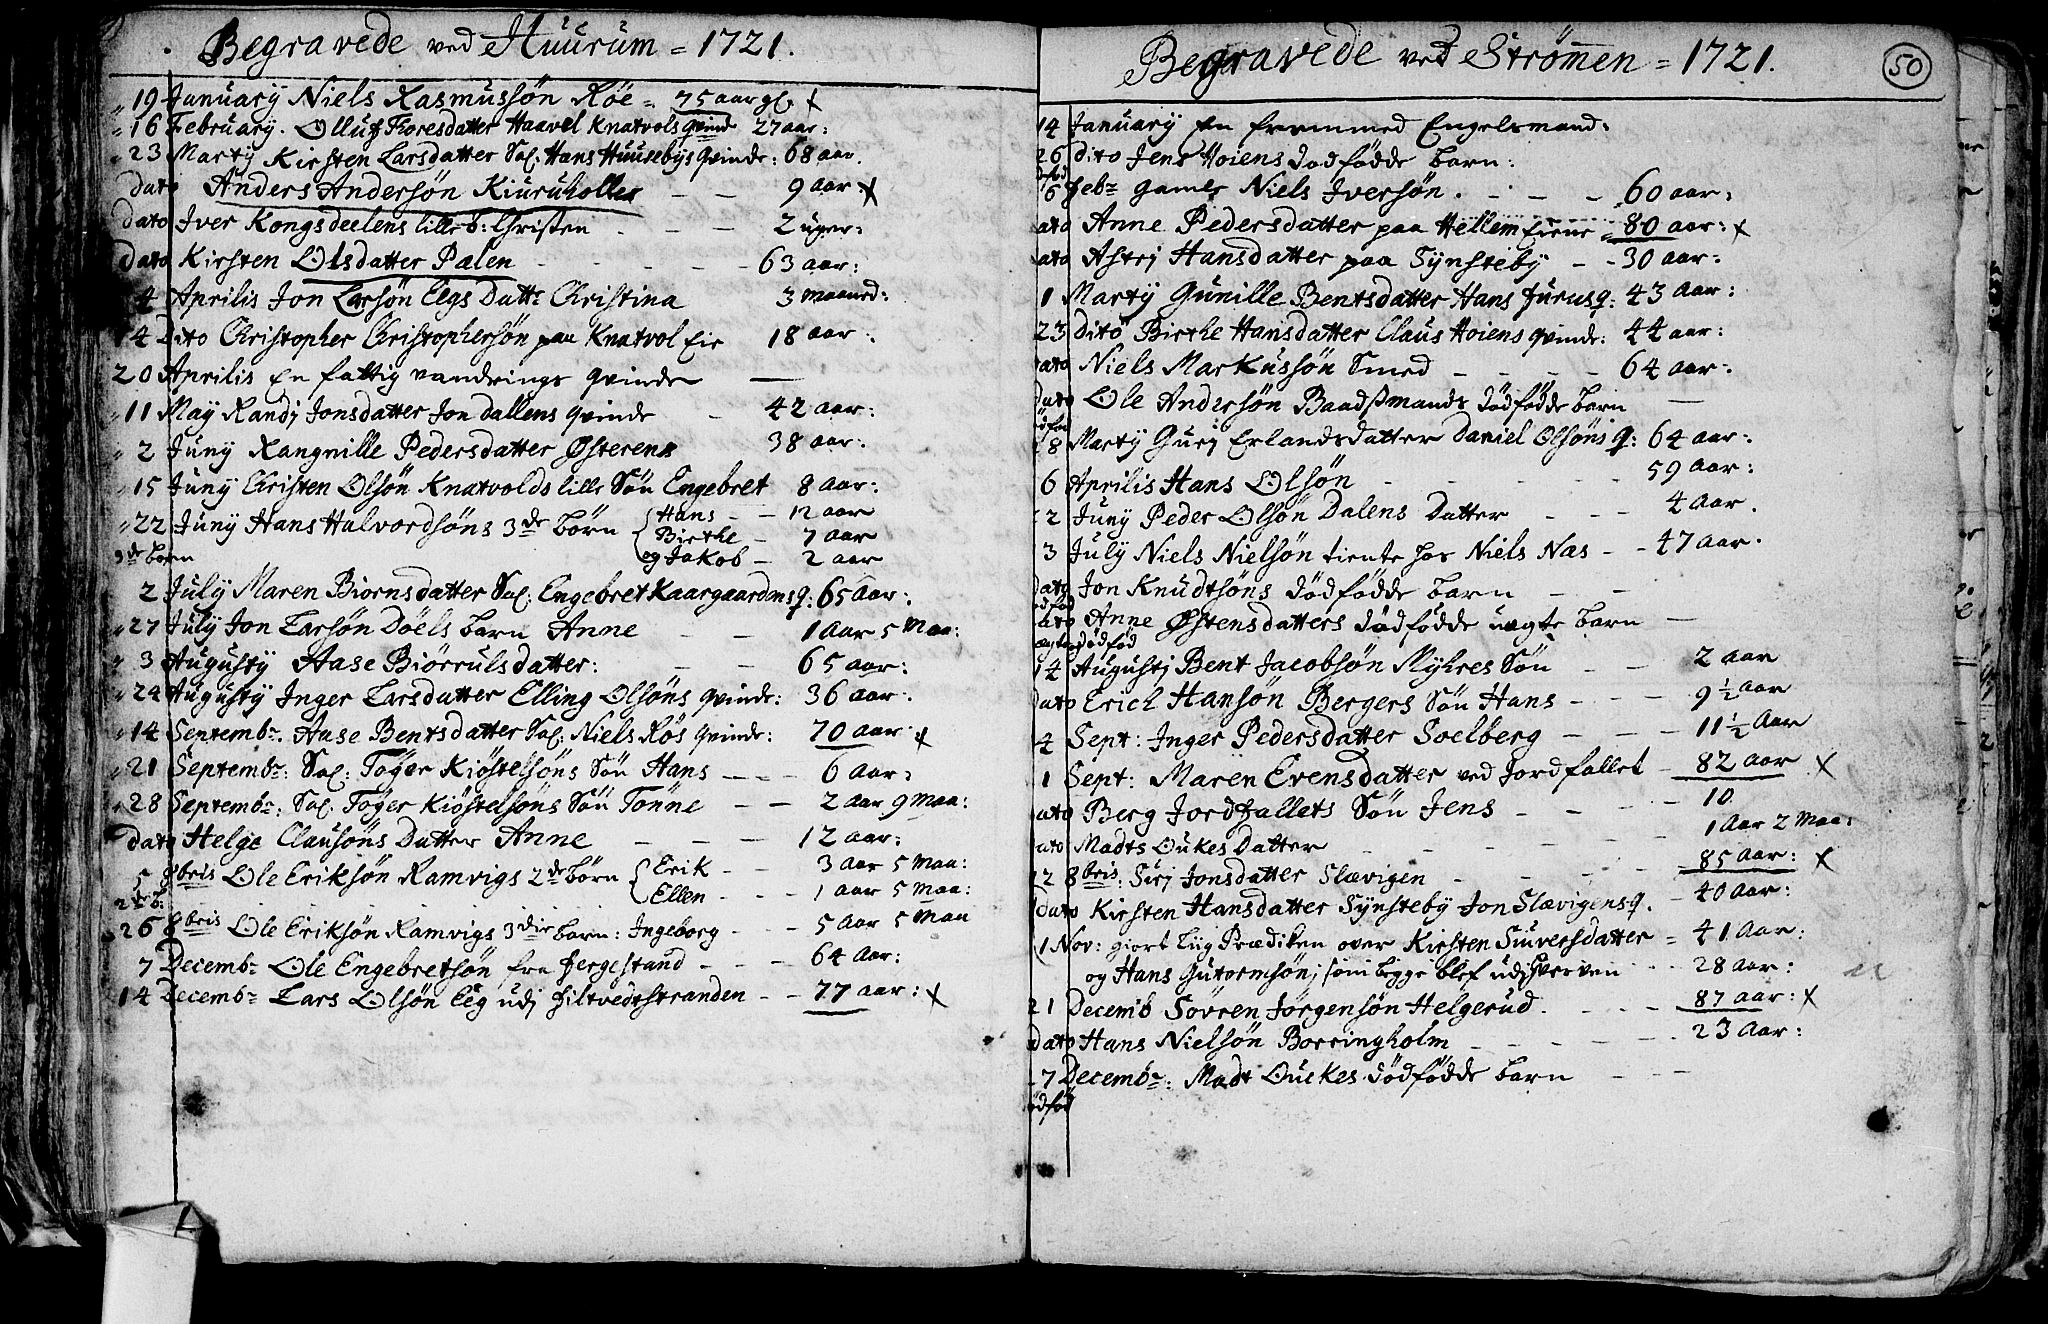 Begravede ved Huurum = 1721.
19 January Niels Rasmussön Röe = 75 aar gl. x
16 February. Olluf Thoresdatter Haavel Knatvols qvinde 27 aar:
23 Martÿ Kirsten Larsdatter Sal: Hans Huusebÿs qvinde: 68 aar.
dato Anders Andersön 9 aar: x
dato Iver Kongsdeelens lille b: Christen - - - 2 uger:
dato Kirsten Olsdatter Palen - - - - 63 aar:
4 Aprilis Jon Larsön Eegs Datt: Christina 3 maaned:
14 Dito Christopher Christophersön paa Knatvol Eie 18 aar:
20 Aprilis En fattig vandrings qvinde —
11 May Randj Jonsdatter Jon Dallens qvinde - 42 aar:
2 Junÿ Rangnille Pedersdatter Østerens 38 aar:
15 Junÿ Christen Olsön Knatvolds lille Sön Engebret 8 aar:
22 Junÿ Hans Halvordsöns 3de börn { Hans - - 12 aar
Birthe - 7 aar
3de börn og Jakob - 2 aar
2 July Maren Biornsdatter Sal: Engebret Kaargaardens q: 65 aar:
27 July Jon Larsön Döels barn Anne - - 1 aar 5 maa:
3 Augustÿ Aase Biörrulsdatter: - - 65 aar:
24 Augustÿ Inger Larsdatter Elling Olsöns qvinde: 36 aar:
14 Septembr. Aase Bentsdatter Sal: Niels Rös qvinde: 70 aar: x
21 Septembr: Sal: Töger Kiöstelsöns Sön Hans - - - 6 aar:
28 Septembr: Sal. Töger Kiöstelsöns Sön Tönne - - 2 aar 9 maa:
dato Helge Clausöns Datter Anne - - - 12 aar:
5 8bris Ole Eriksön Ramvigs 2de börn { Erik - - 3 aar 5 maa:
2de b: Ellen - - - 1 aar 5 maa:
26 8bris Ole Eriksön Ramvigs 3die barn: Ingeborg - - - 5 aar 5 maa
7 Decembr Ole Engebretsön fra Hergestrand - - - 64 aar:
14 Decembr Lars Olsön Eeg udj Filtvedtstranden - - 77 aar: x
Begravede ved Strömen = 1721.
50
14 January En fremmed Engelsmand:
26 dito Jens Hoiens dödfödde barn:
6 febr gamle Niels Iversön. - - - 60 aar:
ato Anne Pedersdatter paa Hellem Eiene = 80 aar: x
ato Astrj Hansdatter paa Sÿnstebÿ - - 30 aar:
1 Martÿ Gunille Bentsdatter Hans Furus q: 43 aar:
23 dito Birthe Hansdatter Claus Hoiens qvinde: 44 aar:
ato Niels Markussön Smed - - - - 64 aar:
dato Ole Andersön Baadßmands dödfödde barn —
28 Martÿ Gurj Erlandsdatter Daniel Olsöns q: 64 aar:
6 Aprilis Hans Olsön - - - - - 59 aar:
2 Junÿ Peder Olsön Dalens Datter - - - 4 aar.
3 July Niels Nielsön tiente hos Niels Næs - - 47 aar.
dato Jon Knudtsöns dödfödde barn - -
ato Anne Østensdatters dödfödde uegte barn —
dödföd
14 Augustj Bent Jacobsön Mÿhres Sön - - 2 aar
dato Erich Hansön Bergers Sön Hans - - - 9 ½ aar
4 Sept: Inger Pedersdatter Soelberg - - - 11 ½ aar
1 Sept: Maren Evensdatter ved Jordfallet - 82 aar x
ato Berg Jordfallets Sön Jens - - - 10.
ato Madts Oukes Datter - - - - - 1 aar 2 maa:
12 8bris: Sirj Jonsdatter Slævigen - - - - 85 aar: x
dato Kirsten Hansdatter Sÿnstebÿ Jon Slævigens q. - 40 aar:
1 Nov: giort Liig Prædiken over Kirsten Siuversdatter = 41 aar:
og Hans Gutormsön; som begge blef udj Hverven - - 28 aar:
21 Decemb Sövren Jörgensön Helgerud. - - - 87 aar: x
dato Hans Nielsön Borringholm - - - - - 23 aar:
27 Decembr: Madt Ouckes dödfödde barn - - -
ödföd